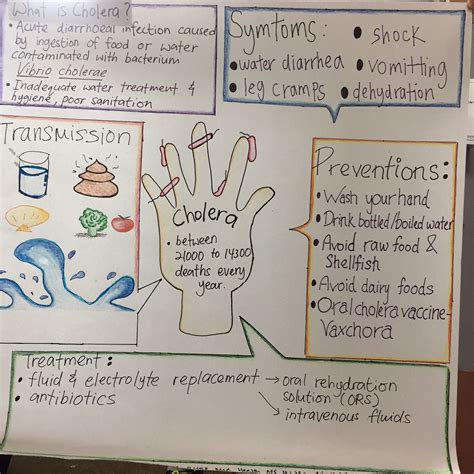 What is Cholera?
• Acute diarrhoeal infection caused
by ingestion of food or water
contaminated with bacterium
Vibrio cholerae
• Inadequate water treatment &
hygiene, poor sanitation
Symtoms:
• water diarrhea
• leg cramps
• shock
• vomitting
• dehydration
Transmission
Cholera
• between
21000 to 14300
deaths every
year.
Preventions:
• Wash your hand
• Drink bottled/boiled water
• Avoid raw food &
Shellfish
• Avoid dairy foods
• Oral cholera vaccine-
Vaxchora
Treatment:
• fluid & electrolyte replacement → oral rehydration
solution (ORS)
→ intravenous fluids
• antibiotics